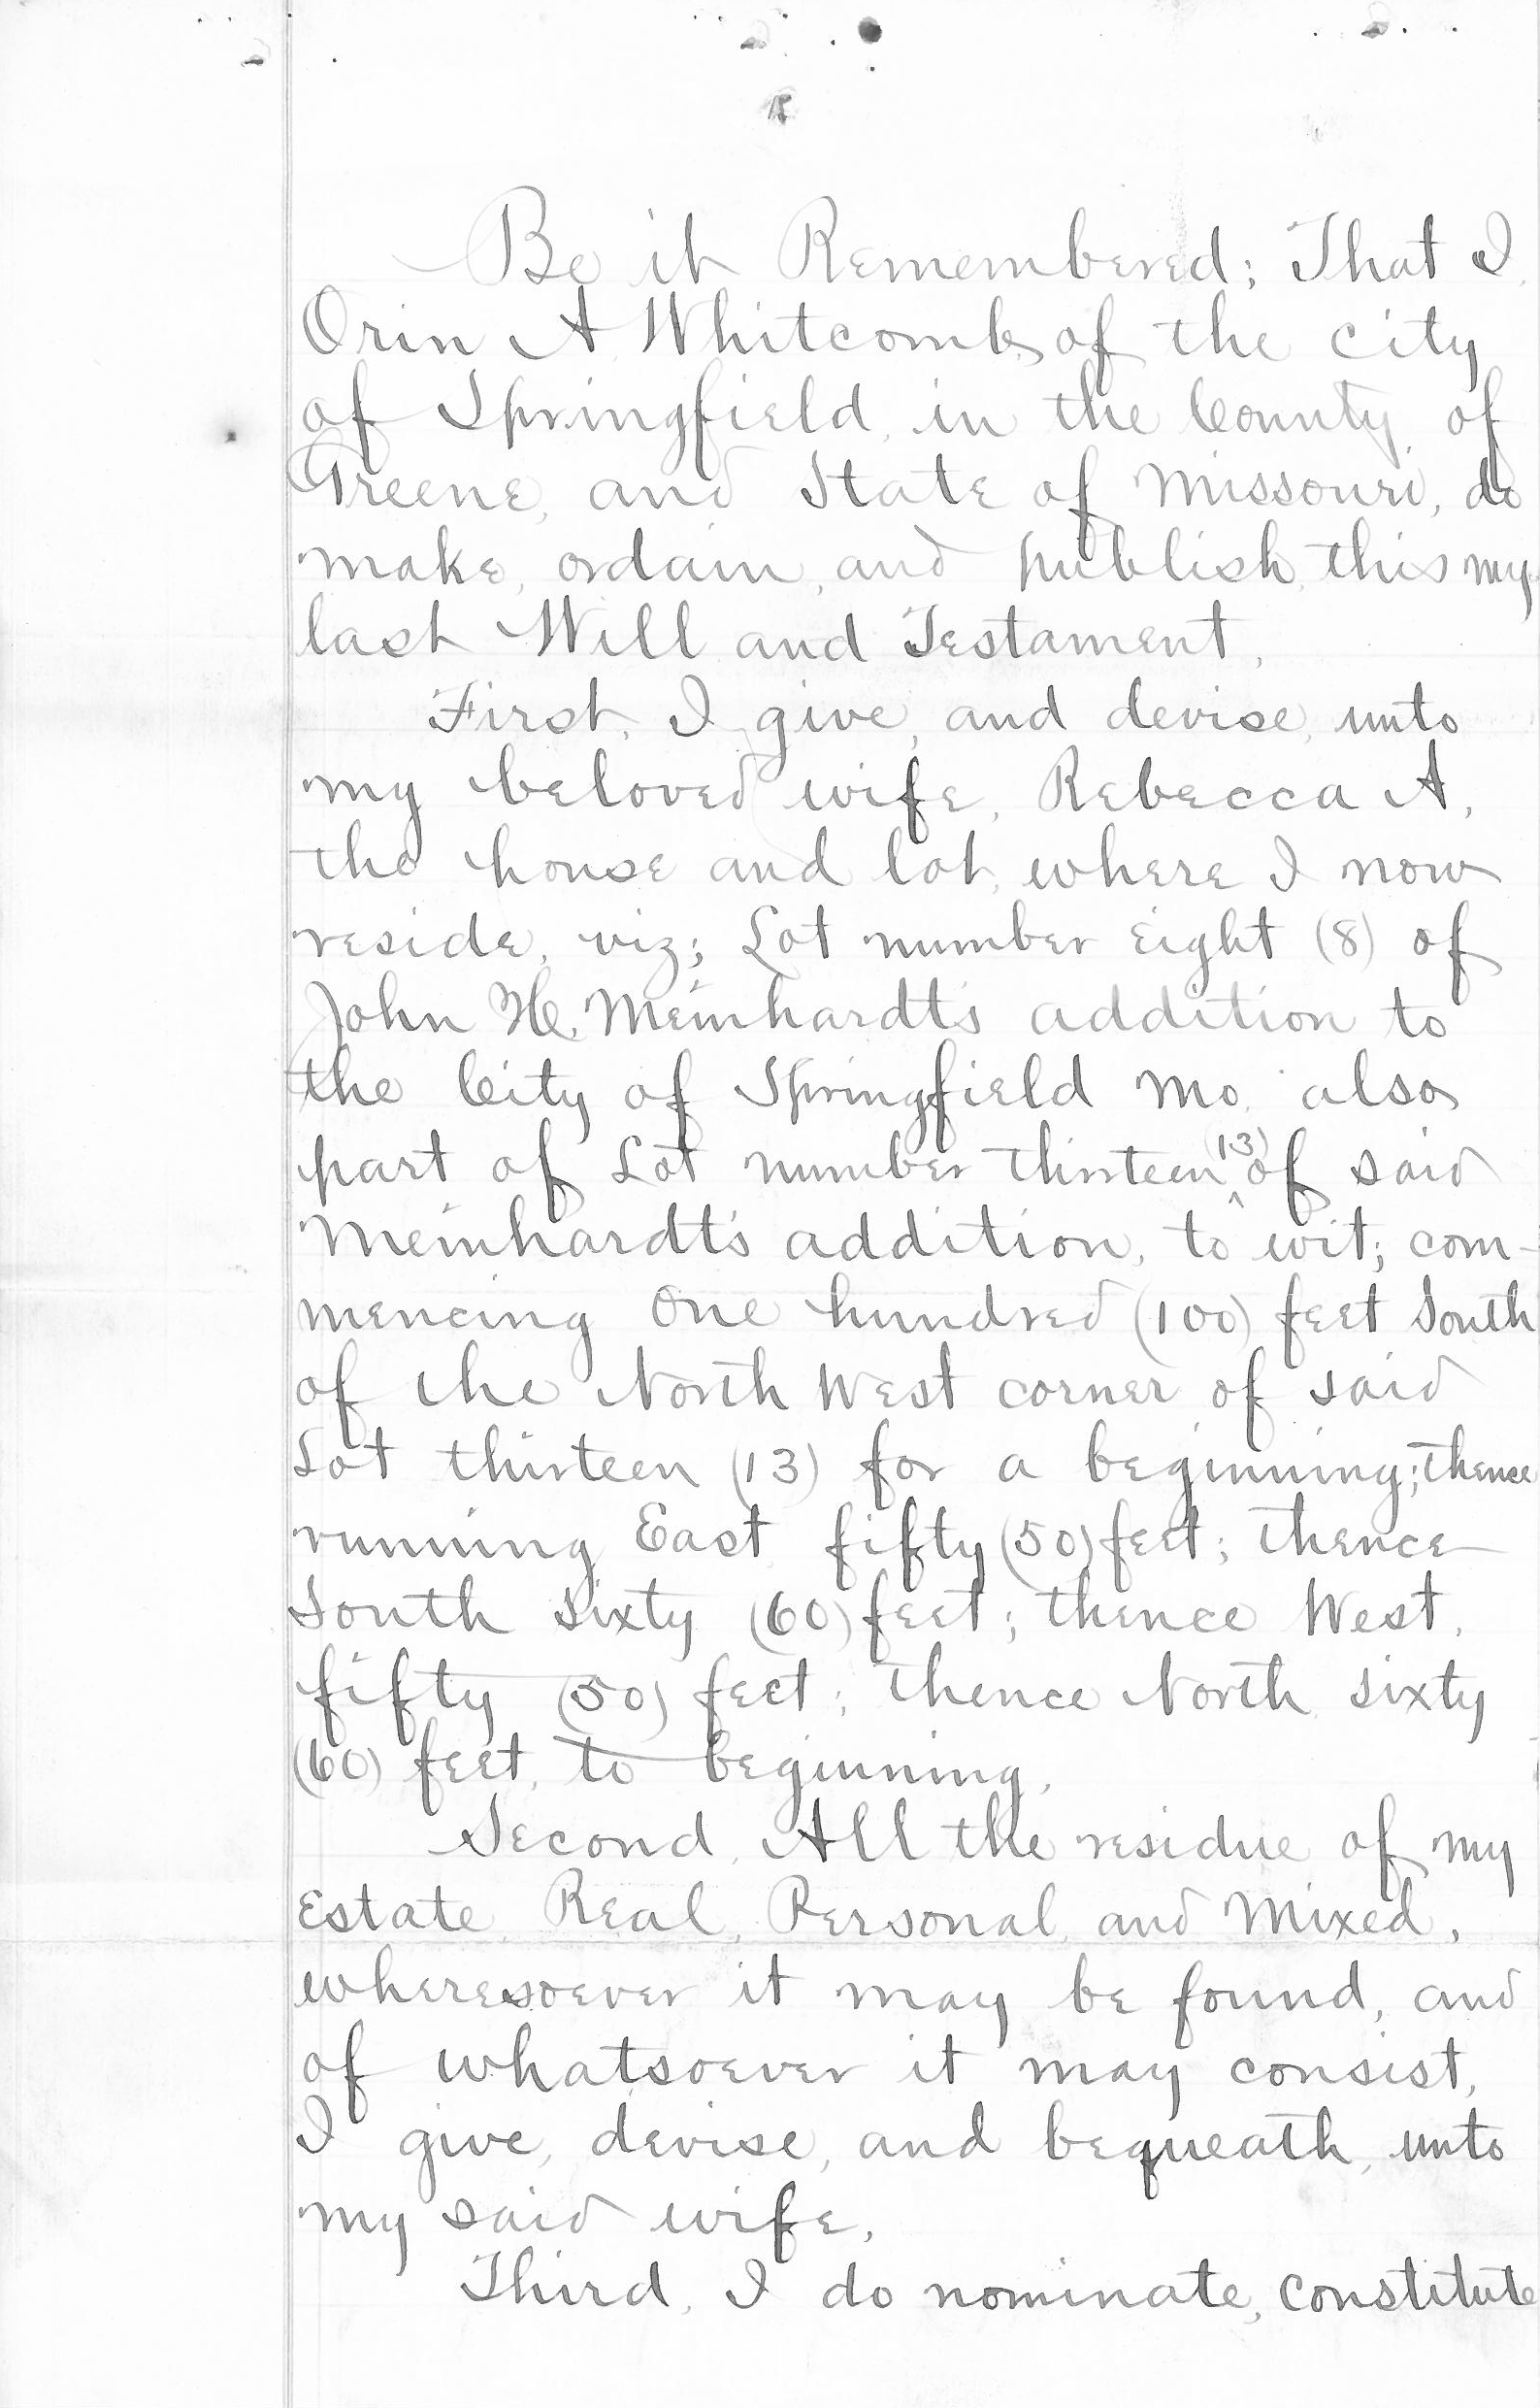 Be it Remembered; That I,
Orin A. Whitcomb, of the city
of Springfield, in the County, of
Greene, and State of Missouri, do
make, ordain, and publish, this my
last Will and Testament.
First, I give, and devise, unto
my beloved wife, Rebecca A,
the house and lot, where I now
reside, viz; Lot number Eight (8) of
John H. Meinhardt's addition to
the City of Springfield Mo. also
part of Lot number thirteen (13) of said
Meinhardt's addition, to wit; com-
mencing One hundred (100) feet South
of the North West corner of said
Lot thirteen (13) for a beginning; thence
running East fifty (50) feet; thence
South sixty (60) feet; thence West,
fifty (50) feet; thence North sixty
(60) feet, to beginning.
Second, All the residue of my
Estate, Real, Personal, and Mixed,
wheresoever it may be found, and
of whatsoever it may consist,
I give, devise, and bequeath, unto
my said wife.
Third, I do nominate, constitute